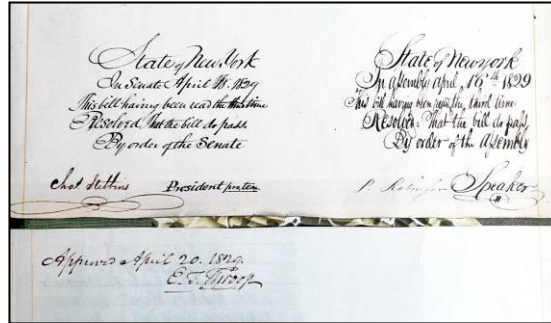 State of New York
In Senate April 18. 1829
This bill having been read the third time
Resolved That the bill do pass.
By order of the Senate
Chas. Stebbins President protem.
State of New York
In Assembly April, 16th 1829
This bill having been read the third time
Resolved: That the bill do pass
By order of the Assembly
P. Robinson Speaker
Approved April 20. 1829.
E. T. Throop